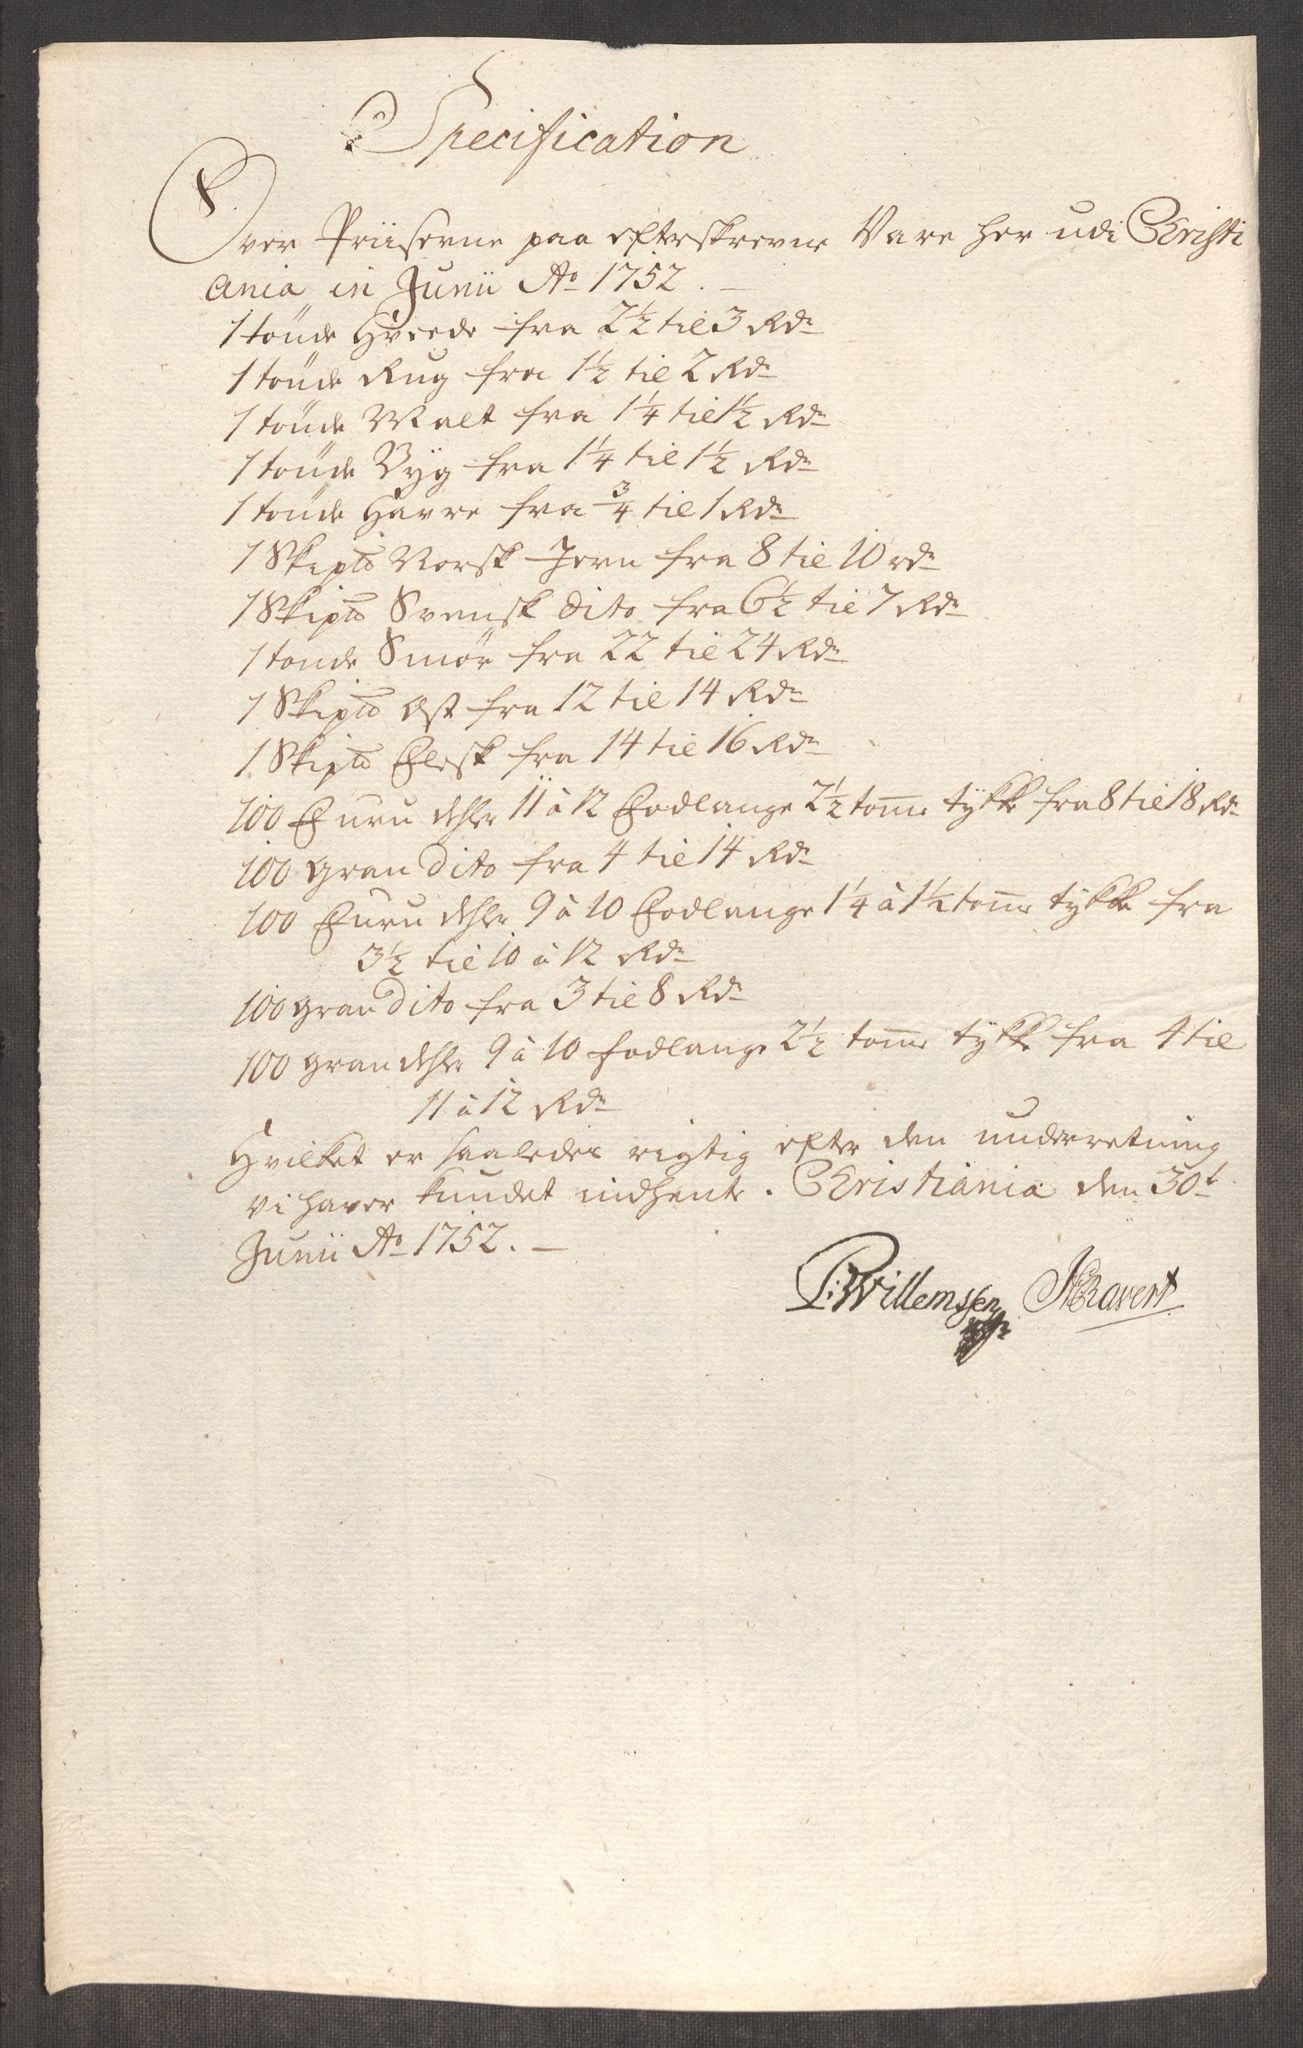 Specification
Over Priiserne paa efterskrevne Vare her udi Christi
ania in Junii Ao 1752. —
1 tönde Hveede fra 2½ til 3 Rdr
1 tönde Rug fra 1½ til 2 Rdr
1 tönde Malt fra 1¼ til 1½ Rdr
1 tönde Byg fra 1¼ til 1½ Rdr
1 tönde Havre fra ¾ til 1 Rdr
1 Skipd Norsk Jern fra 8 til 10 rdr
1 Skipd Svensk dito fra 6½ til 7 Rdr
1 tonde Smør fra 22 til 24 Rdr
1 Skipd Ost fra 12 til 14 Rdr
1 Skipd Flesk fra 14 til 16 Rdr
100 Furu dehler 11 à 12 Fodlange 2½ tomr tykke fra 8 til 18 Rdr
100 gran dito fra 4 til 14 Rdr
100 Furu dehler 9 à 10 Fodlange 1¼ à 1½ tomr tykke fra
3½ til 10 à 12 Rdr
100 gran dito fra 3 til 8 Rdr
100 gran dehler 9 à 10 fodlange 2½ tomr tykke fra 4 til
11 à 12 Rdr
Hvilket er saaledes rigtig efter den underretning
vi haver kundet indhente. Christiania den 30t
Junii Ao 1752. —
P: Willemssen Ravert